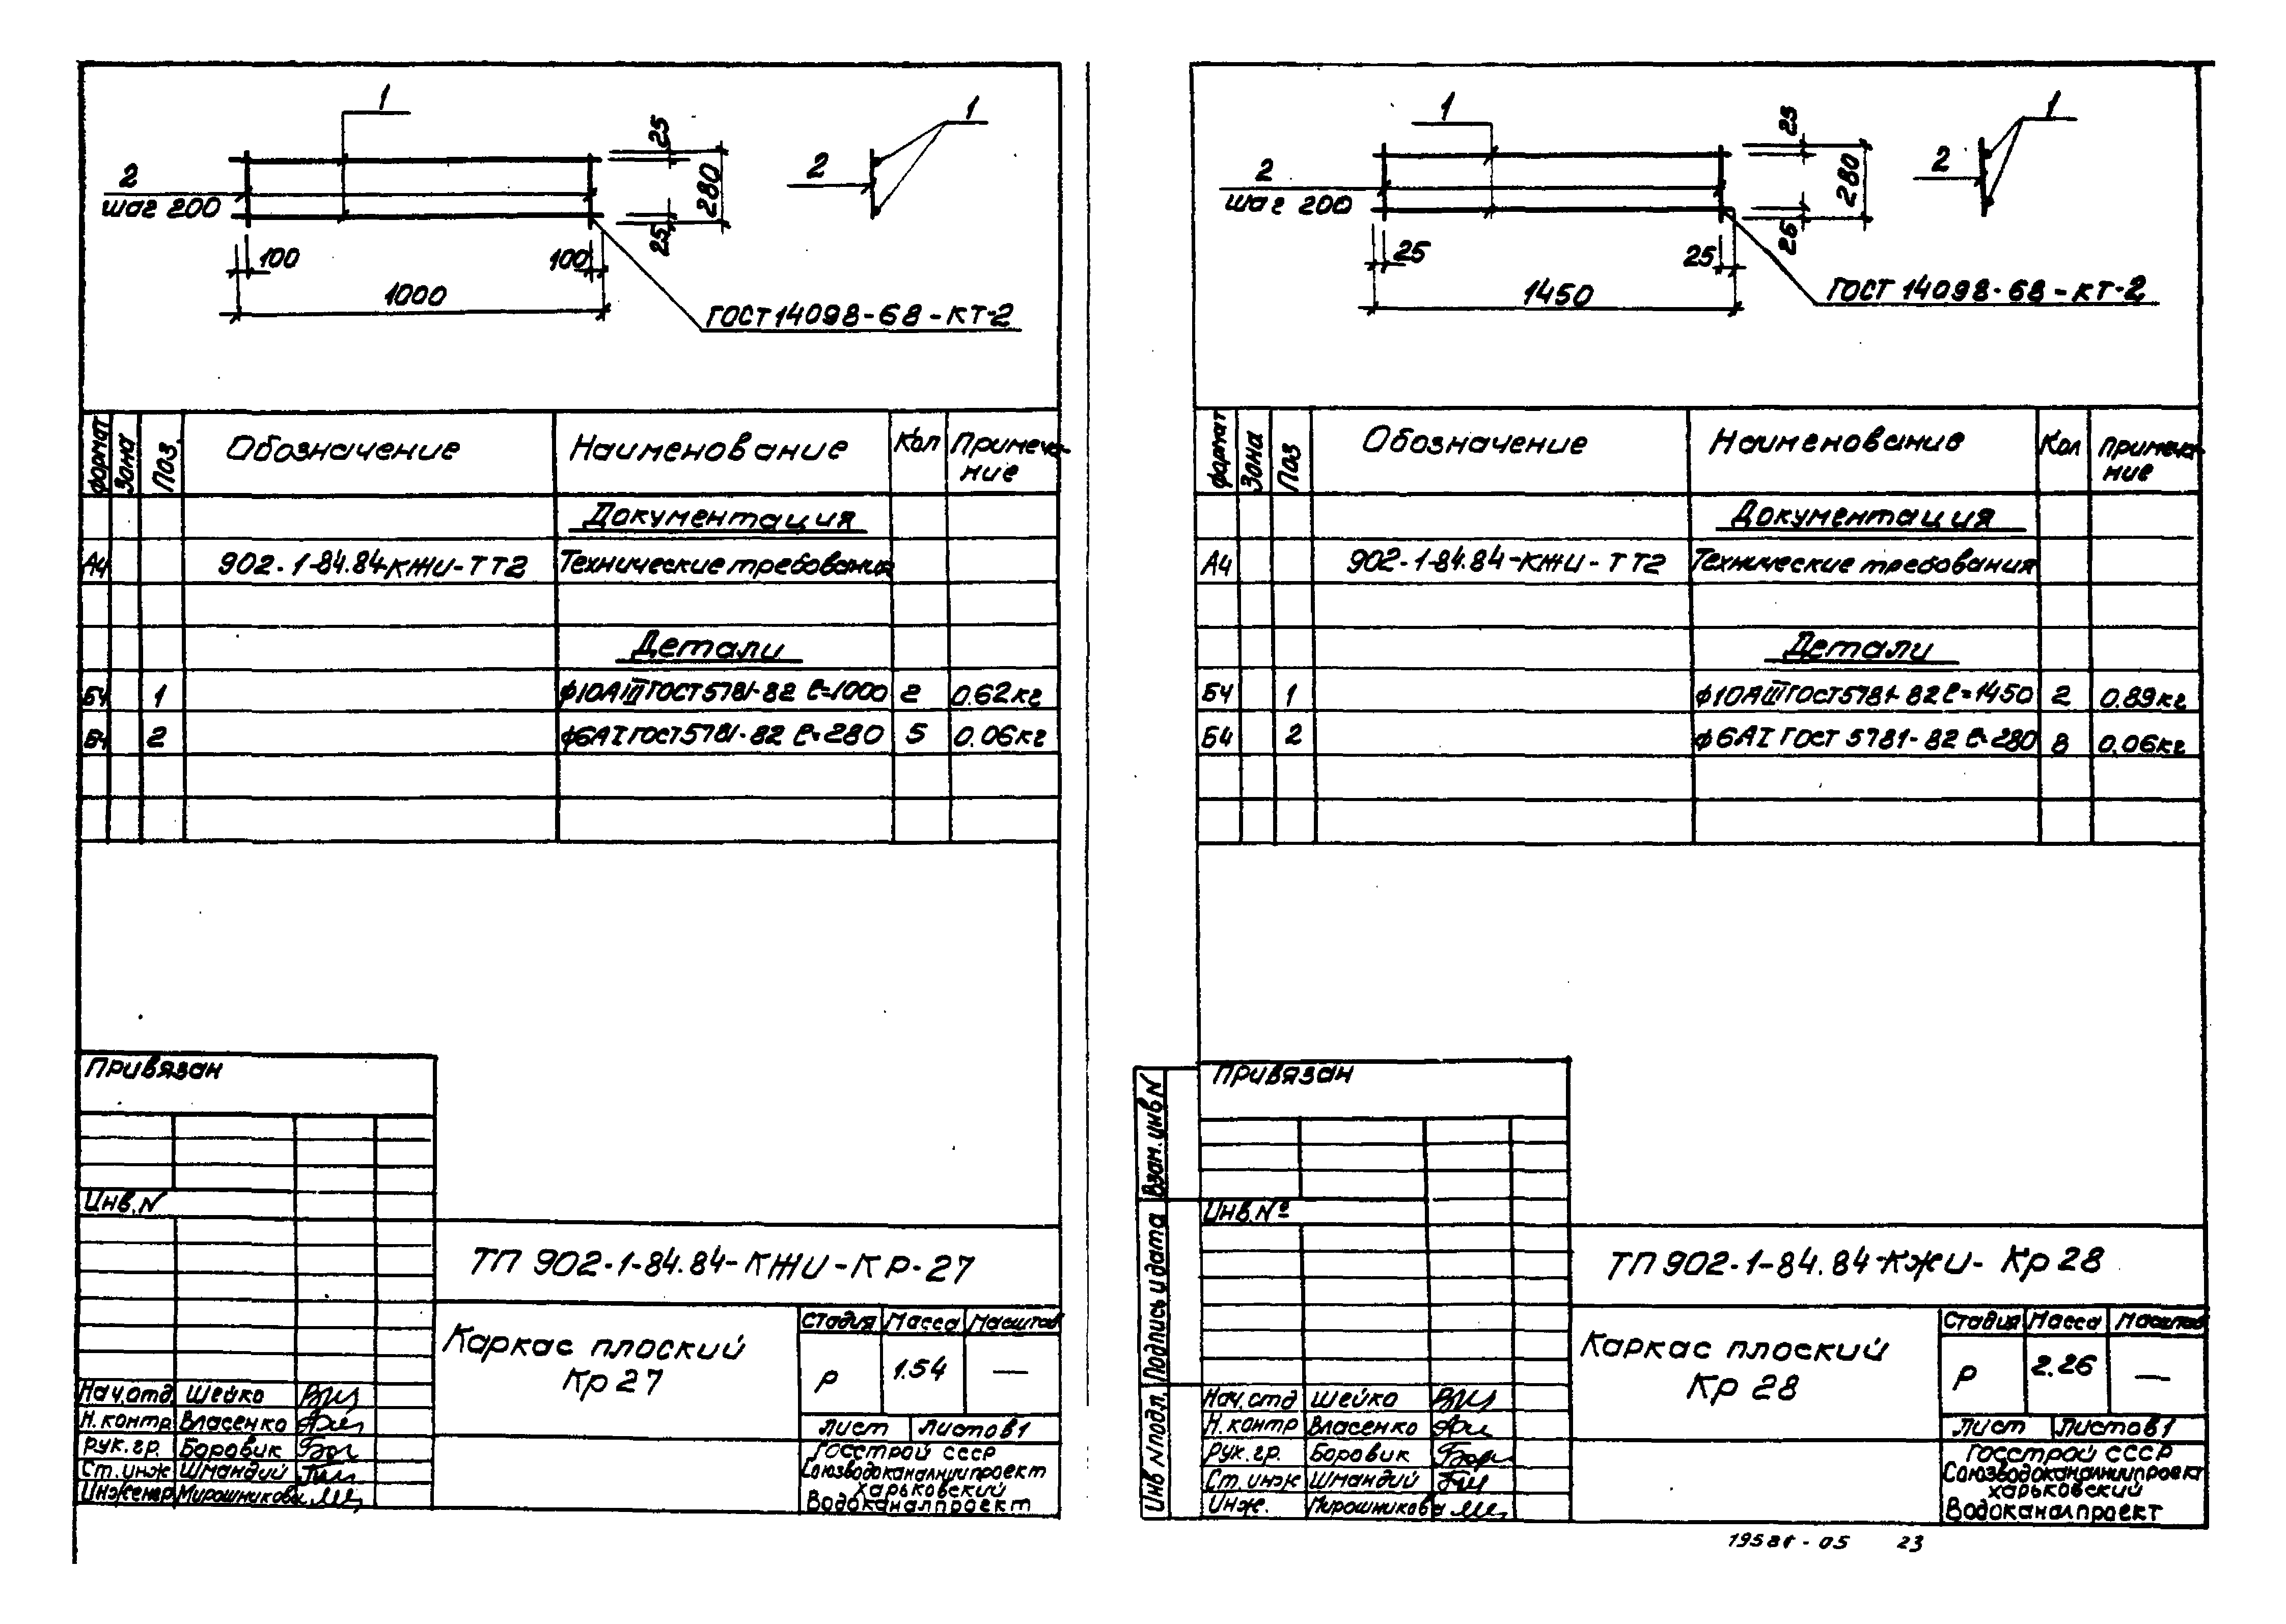 1
2
шаг 200
25
280
25
100
100
1000
ГОСТ 14098-68-КТ-2
2
1
формат Зона Поз. Обозначение Наименование Кол Примеча-
ние
Документация
А4 902-1-84.84-КЖИ-ТТ2 Технические требования
Детали
Б4 1 ф10АIII ГОСТ 5781-82 ℓ=1000 2 0.62кг
Б4 2 ф6АI ГОСТ 5781-82 ℓ=280 5 0.06кг
Привязан
Инв.N
ТП 902-1-84.84-КЖИ-КР-27
Каркас плоский
Кр 27
Стадия Масса Масштаб
Р 1.54 —
Лист Листов 1
Госстрой СССР
Союзводоканалниипроект
Харьковский
Водоканалпроект
Нач.отд Шейко
Н.контр. Власенко
Рук.гр. Боровик
Ст.инж Шмандий
Инженер Мирошникова
1
2
шаг 200
25
280
25
25
25
1450
ГОСТ 14098-68-КТ-2
2
1
формат Зона Поз Обозначение Наименование Кол Примеча-
ние
Документация
А4 902-1-84.84-КЖИ-ТТ2 Технические требования
Детали
Б4 1 ф10АIII ГОСТ 5781-82 ℓ=1450 2 0.89кг
Б4 2 ф6АI ГОСТ 5781-82 ℓ=280 8 0.06кг
Взам.инв N
Подпись и дата
Инв N подл.
Привязан
Инв.№
ТП 902-1-84.84-КЖИ-Кр 28
Каркас плоский
Кр 28
Стадия Масса Масштаб
Р 2.26 —
Лист Листов 1
Госстрой СССР
Союзводоканалниипроект
Харьковский
Водоканалпроект
Нач.отд Шейко
Н.контр Власенко
Рук.гр. Боровик
Ст.инж Шмандий
Инж. Мирошникова
23